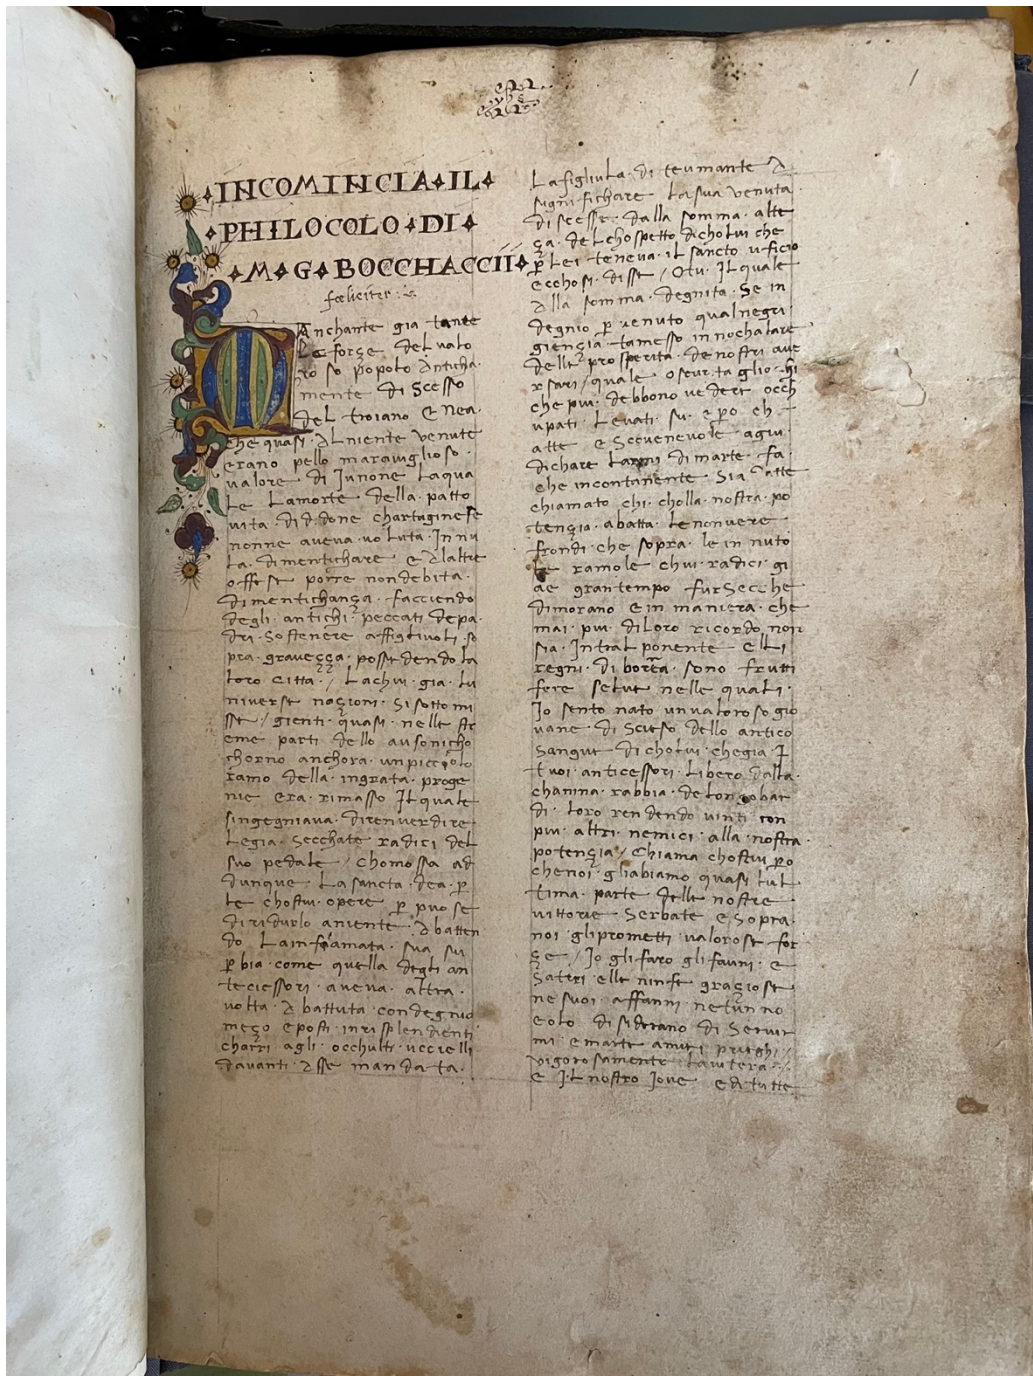 yhs
1
INCOMINCIA IL
PHILOCOLO DI
M G BOCCHACCII
foeliciter
Manchante gia tante
Le forze del valo
roso popolo anticha
mente di scesso
del troiano Enea
che quasi alniente venute
erano pello maraviglioso
valore di Junone Laqua
Le Lamorte della patto
vita dididone chartaginese
nonne aveva voluta In nu
La dimentichare e alaltre
offese porre nondebita
dimentichanza facciendo
degli antichi peccati depa
dri sostenere affiglivoli so
pra gravezza possedendo la
loro citta / Lachui gia lu
niverse nazioni si sotto mi
sse / gienti quasi nelle str
eme parti dello ausonicho
chorno anchora un picciolo
ramo della ingrata proge
nie era rimasso Il quale
singegniava dirinverdire
Legia secchate radici del
suo pedale / chomossa ad
dunque La sancta dea p
le chostui opere p puose
di ridurlo aniente abatten
do Lainfiamata sua su
p bia come quella degli an
teciessori aveva altra
volta abattuta condegnio
mezo eposti inrisplendienti
charri agli occhulti uccielli
davanti asse mandata
La figliula di teumante a
significhare La sua venuta
discesse dalla somma alte
za del chospetto di cholui che
p Lei teneva il sancto uficio
ecchosi disse / O tu Il quale
alla somma degnita se in
degnio p venuto qual negri
gienzia tamesso innochalare
delle prosperita de nostri ave
rsari / quale oscurtaglio hi
che piu debbono vedere occh
upati Levati su e po ch
atte e sconvenevole agiu
dichare Larmi di marte fa
che incontanente sia atte
chiamato chi cholla nostra po
tenzia abatta Le non vere
frondi che sopra le in nuto
Le ramole chui radici gi
ae grantempo fur secche
dimorano e in maniera che
mai piu di Loro ricordo non
sia Intral ponente elli
regni di borea sono frutti
fere selve nelle quali
Io sento nato un valoroso gio
vane di scieso dello antico
sangue di cholui chegia i
tuoi anticessori libero dalla
chanina rabbia de Longobar
di Loro rendendo vinti con
piu altri nemici alla nostra
potenzia / Chiama chostui po
chenoi gliabiamo quasi lul
tima parte delle nostre
vittorie serbate e sopra
noi gli prometti valorose for
ze / Io gli faro gli fauni e
satiri elle ninfe graziose
ne suoi affanni netunno
eolo disiderano di servir
mi e marte amiei prieghi
vigorosamente
e il nostro Jove e di tutte